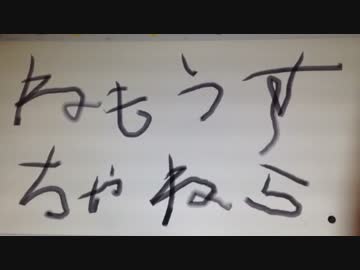 ねもうす
ちゃねら.